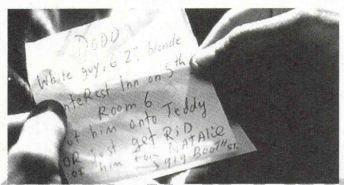 DODD
White guy, 6'2", blonde
nteRest Inn on 5th
Room 6
ut him onto Teddy
OR just get RiD
of him for NATAliE
BOOTH ST.